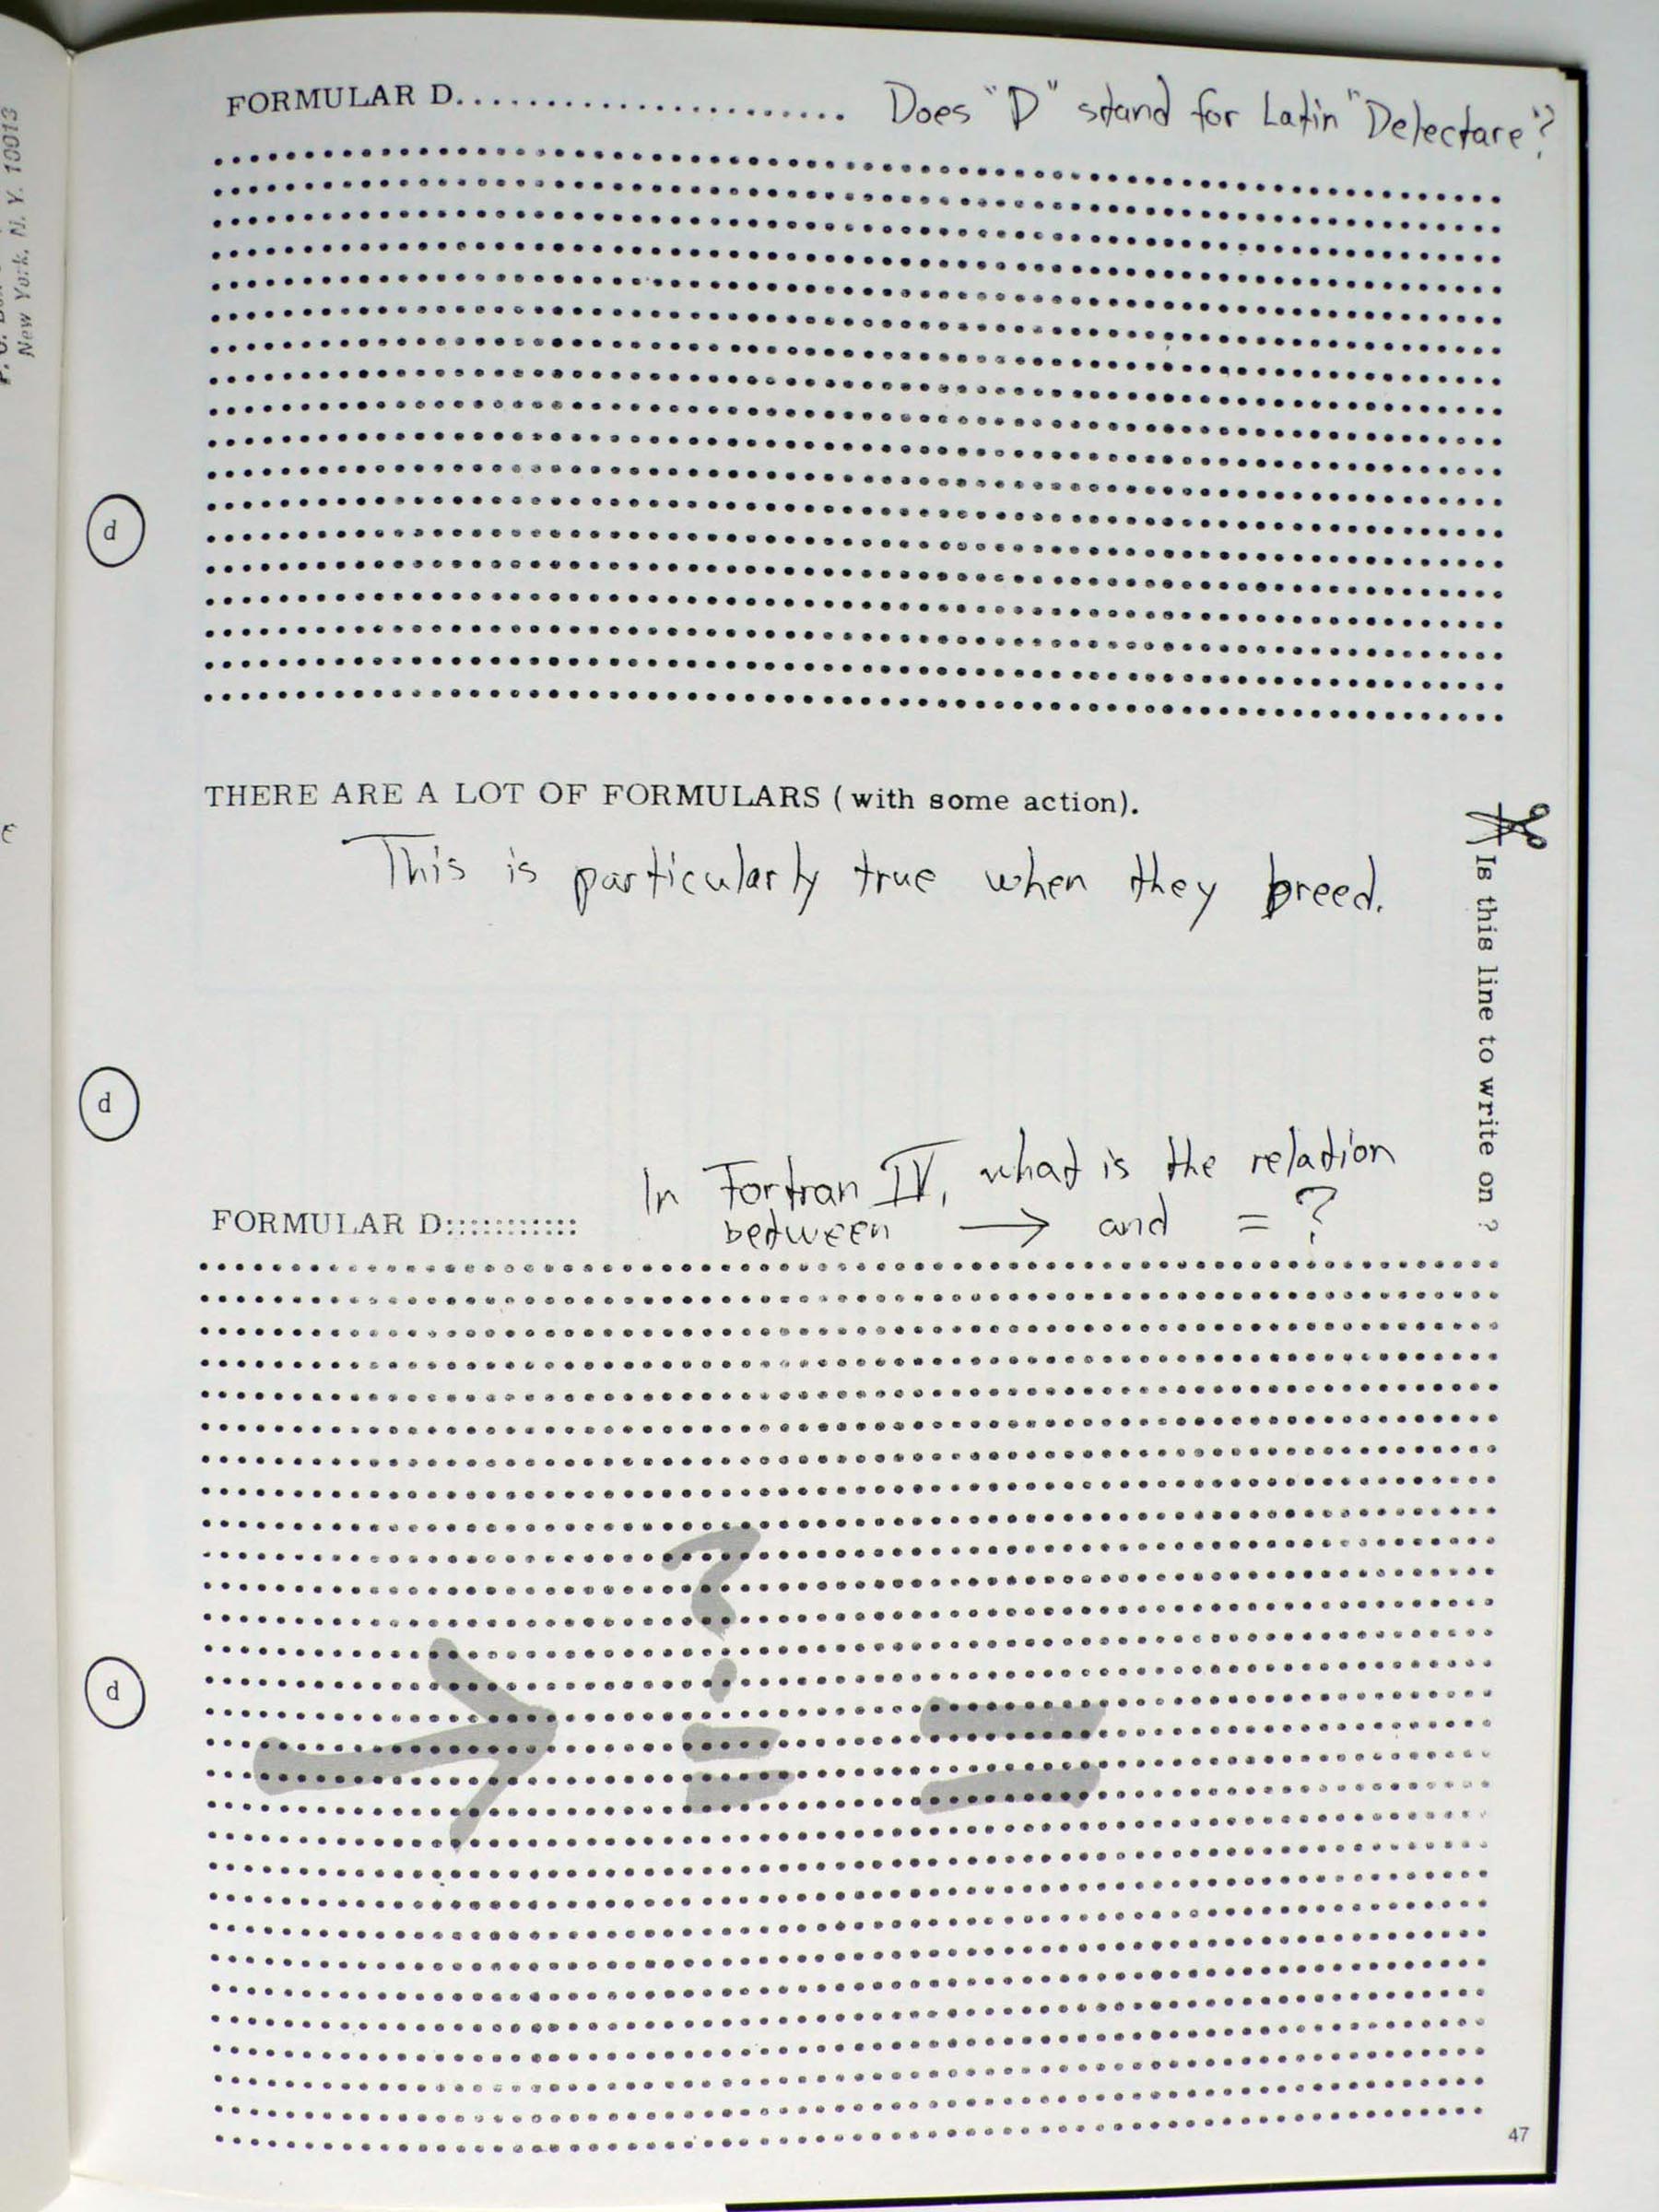 New York, N. Y. 10013
FORMULAR D........................ Does "D" stand for Latin "Delectare"?
d
THERE ARE A LOT OF FORMULARS (with some action).
This is particularly true when they breed.
Is this line to write on ?
d
In Fortran IV, what is the relation
FORMULAR D::::::::::: between → and = ?
d
→ ? = =
47